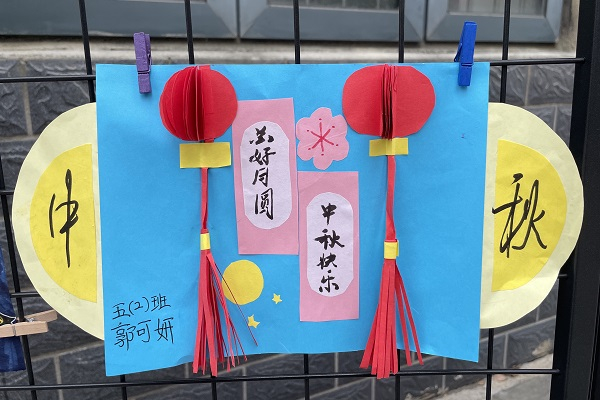 中
花好月圆
中秋快乐
秋
五(2)班
郭可妍